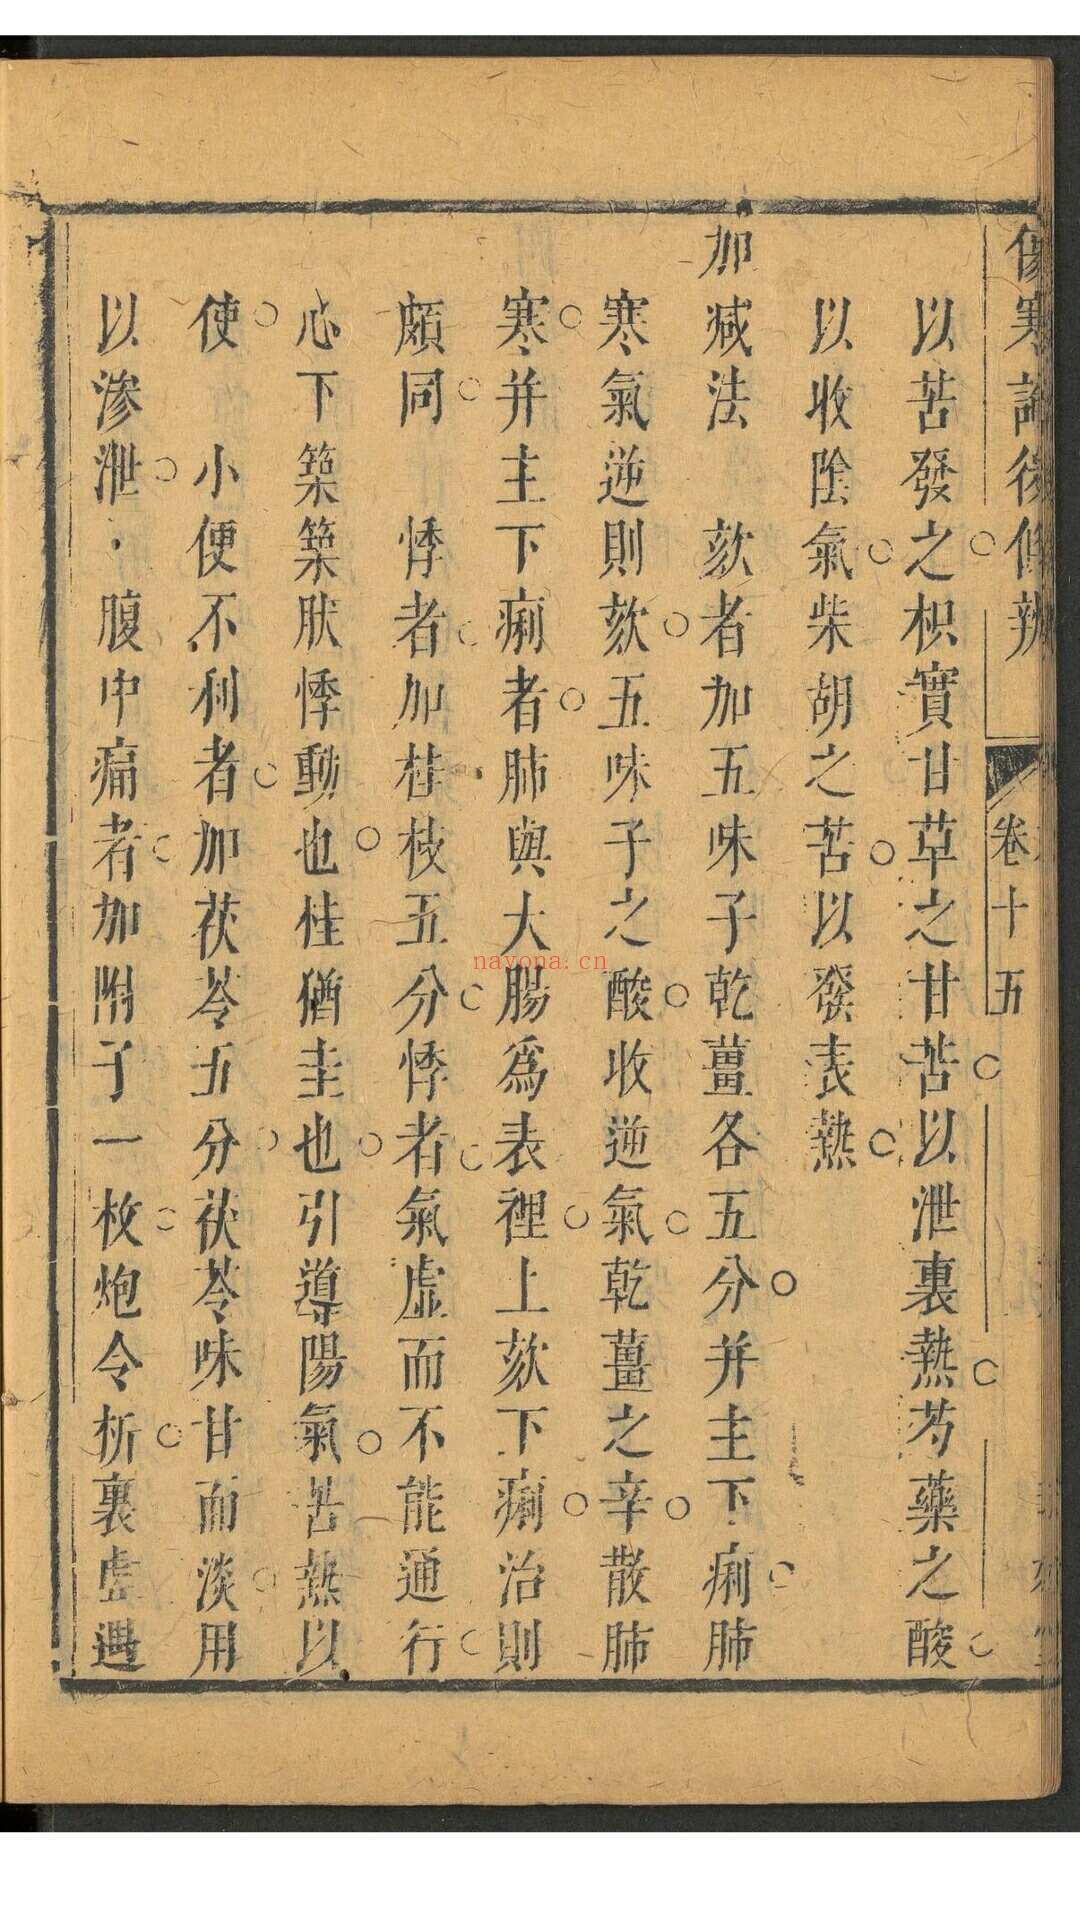 傷寒論後條辨
卷十五
以苦發之枳實甘草之甘苦以泄裏熱芍藥之酸
以收陰氣柴胡之苦以發表熱
加減法 欬者加五味子乾薑各五分并主下痢肺
寒氣逆則欬五味子之酸收逆氣乾薑之辛散肺
寒并主下痢者肺與大腸爲表裡上欬下痢治則
頗同 悸者加桂枝五分悸者氣虛而不能通行
心下築築肰悸動也桂猶圭也引導陽氣苦熱以
使 小便不利者加茯苓五分茯苓味甘而淡用
以滲泄．腹中痛者加附子一枚炮令折裏虛遇
nayona.cn